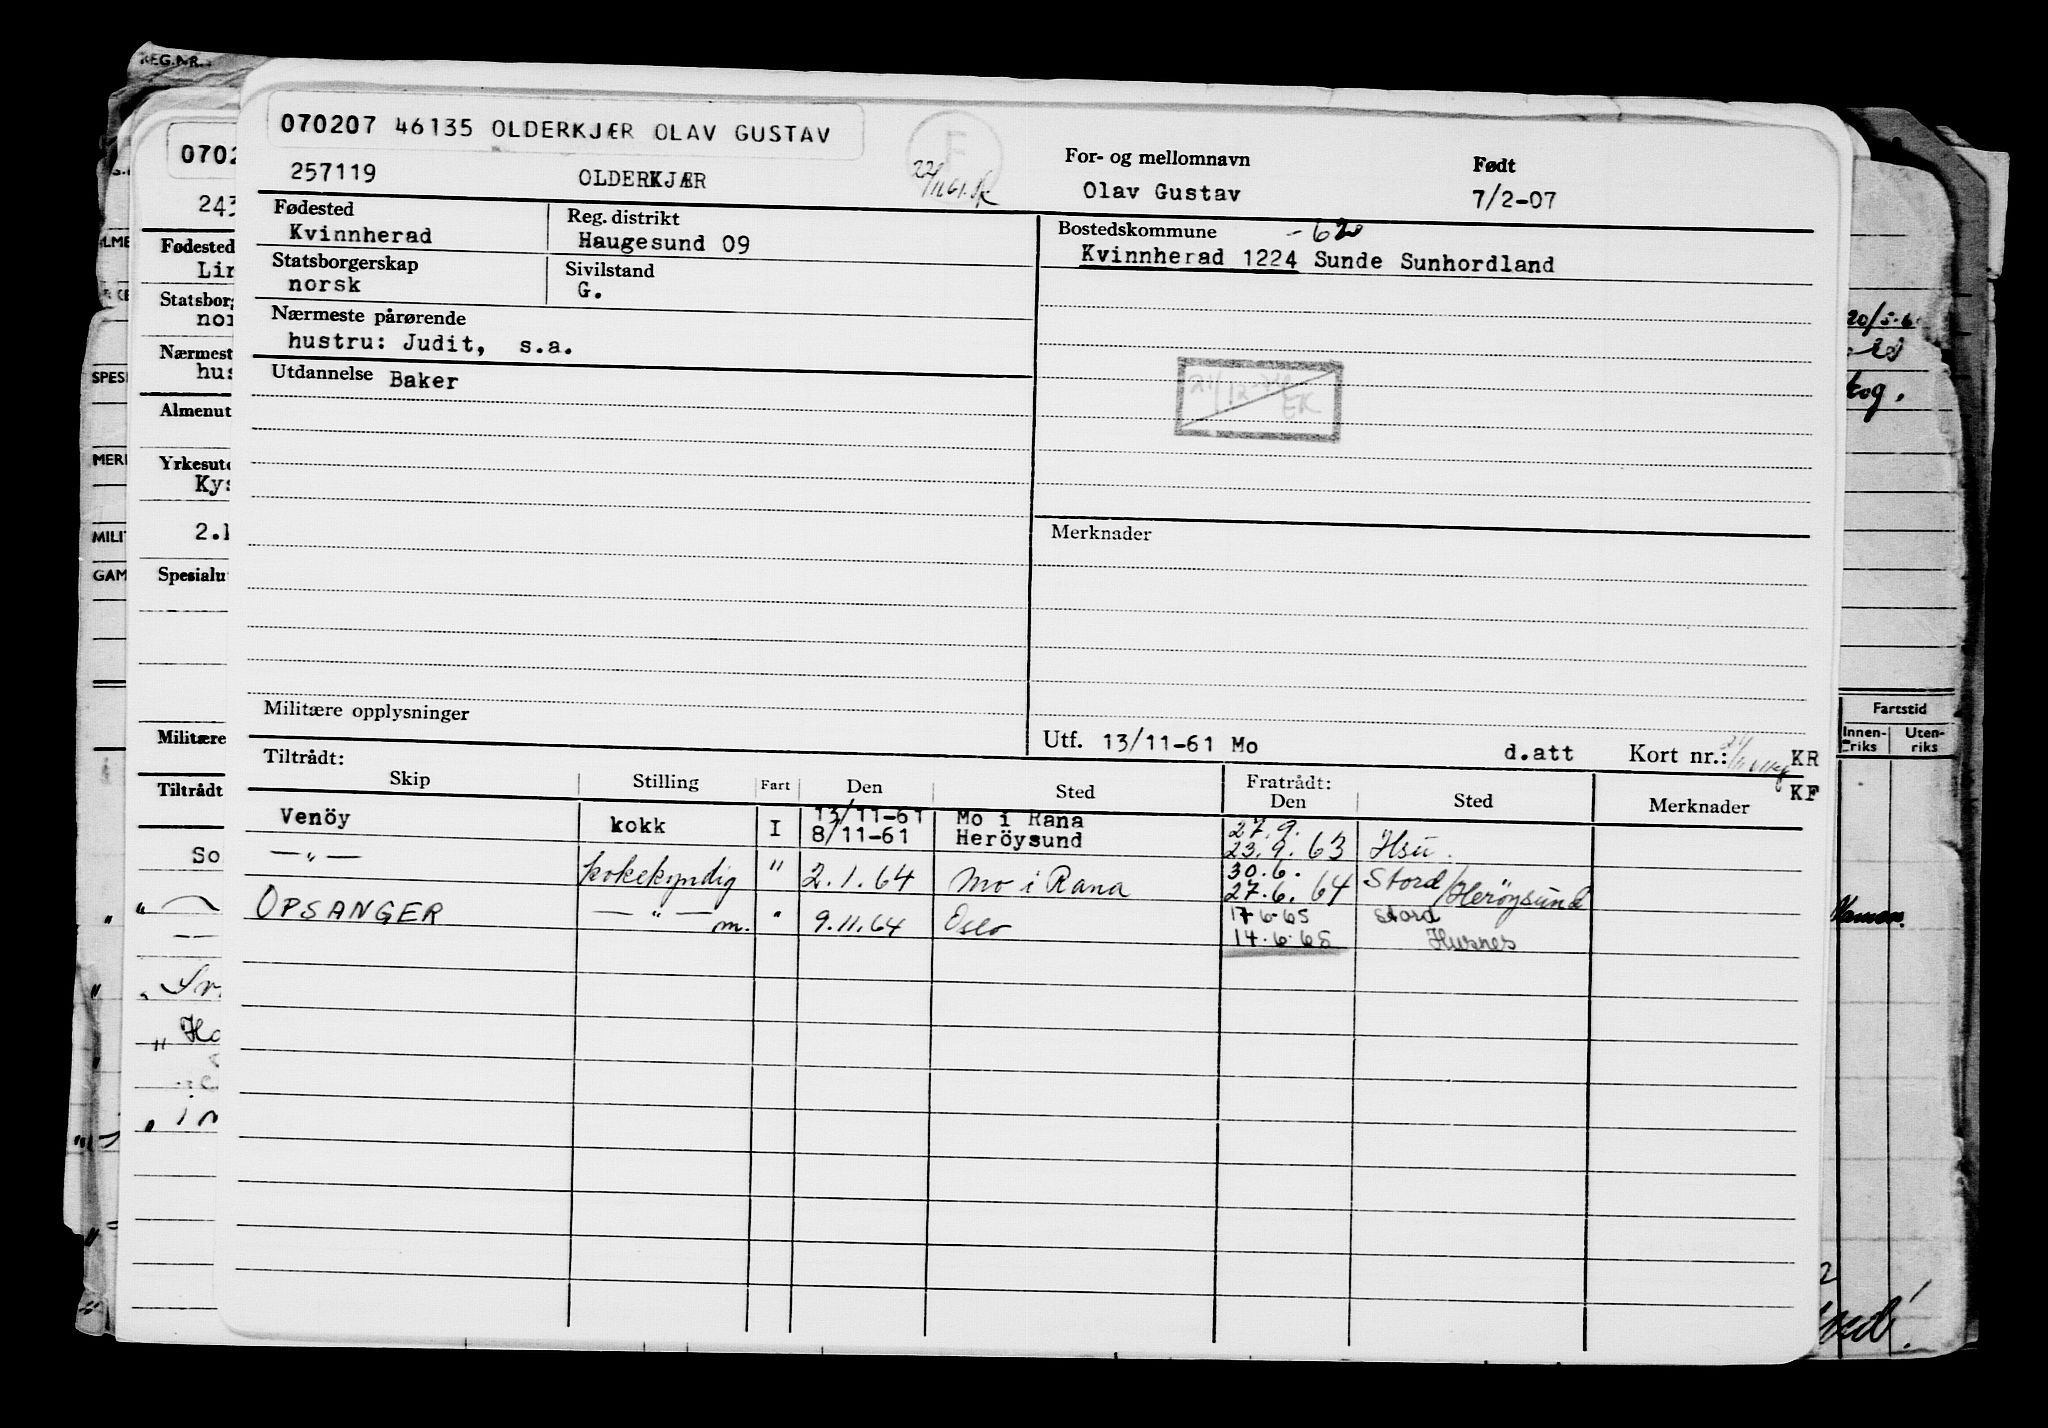 REG.NR.
070207 46135 OLDERKJÆR OLAV GUSTAV
F
257119 OLDERKJÆR
For- og mellomnavn
Olav Gustav
Født
7/2-07
Fødested
Kvinnherad
Reg. distrikt
Haugesund 09
Bostedskommune
Kvinnherad 1224 Sunde Sunhordland
Statsborgerskap
norsk
Sivilstand
G.
Nærmeste pårørende
hustru: Judit, s.a.
Utdannelse Baker
Merknader
Militære opplysninger
Utf. 13/11-61 Mo d.att Kort nr.: KR
KF
Tiltrådt: Fratrådt:
Skip Stilling Fart Den Sted Den Sted Merknader
Venöy kokk I 13/11-61 Mo i Rana 27.9.
8/11-61 Heröysund 23.9.63 Hsu.
— " — kokekyndig " 2.1.64 Mo i Rana 30.6. Stord/
27.6.64 Heröysund
OPSANGER — " — m. " 9.11.64 Oslo 17-6-65 Stord
14.6.65 Husnes
070
243
Fødested
Statsborg
Nærmest
hus
Almenut
Yrkesut
Kys
Spesialu
Militære
Tiltrådt
So
SPESI
MILIT
GAM
20/5-6
Fartstid
Innen-
riks
Uten-
riks